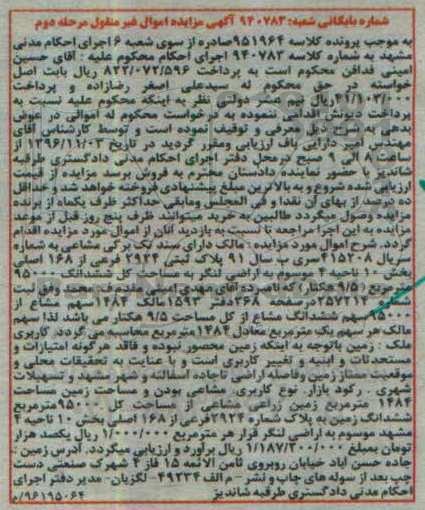 شماره بایگانی شعبه: ۹۴۰۷۸۳ آگهی مزایده اموال غیر منقول مرحله دوم
به موجب پرونده کلاسه ۹۵۱۹۶۴صادره از سوی شعبه ۶ اجرای احکام مدنی
مشهد به شماره کلاسه ۹۴۰۷۸۳ اجرای احکام محکوم علیه : آقای حسین
امینی فدافن محکوم است به پرداخت ۸۲۲/۰۷۲/۵۹۶ ریال بابت اصل
خواسته در حق محکوم له سیدعلی اصغر رضازاده و پرداخت
۴۱/۱۰۳/۰۰۰ریال نیم عشر دولتی نظر به اینکه محکوم علیه نسبت به
پرداخت دیونش اقدامی ننموده به درخواست محکوم له اموالی در عوض
بدهی به شرح ذیل معرفی و توقیف نموده است و توسط کارشناس آقای
مهندس امیر دارابی باف ارزیابی ومقرر گردید در تاریخ ۱۳۹۶/۱۱/۰۳ از
ساعت ۸ الی ۹ صبح درمحل دفتر اجرای احکام مدنی دادگستری طرقبه
شاندیز با حضور نماینده دادستان محترم به فروش برسد مزایده از قیمت
ارزیابی شده شروع و به بالاترین مبلغ پیشنهادی فروخته خواهد شد و حداقل
ده درصد از بهای آن نقدا و فی المجلس ومابقی حداکثر ظرف یکماه از برنده
مزایده وصول میگردد طالبین به خرید میتوانند ظرف پنج روز قبل از موعد
مزایده به این اجرا مراجعه تا نسبت به بازدید آنان از اموال مورد مزایده اقدام
گردد. شرح اموال مورد مزایده : مالک دارای سند تک برگی مشاعی به شماره
سریال ۴۱۵۲۰۸سری ب سال ۹۱ پلاک ثبتی ۲۹۲۴ فرعی از ۱۶۸ اصلی
بخش ۱۰ ناحیه ۴ موسوم به اراضی لنگر به مساحت کل ششدانگ ۹۵۰۰۰
مترمربع (۹/۵ هکتار) که نامبرده آقای مهدی امینی مقدم ف: محمد وفق ثبت
شماره ۲۵۷۲۱۲ درصفحه ۲۶۸دفتر ۱۵۹۳مالک ۱۴۸۴ سهم مشاع از
۹۵۰۰۰سهم ششدانگ مشاع از کل مساحت ۹/۵ هکتار می باشد لذا سهم
مالک هر سهم یک مترمربع معادل ۱۴۸۴ مترمربع محاسبه می گردد. کاربری
ملک : زمین باتوجه به اینکه زمین محصور نبوده و فاقد هرگونه امتیازات و
مستحدثات و ابنیه و تغییر کاربری است و با عنایت به تحقیقات محلی و
موقعیت ممتاز زمین وفاصله اراضی تاجاده آسفالته و شهر مشهد و تسهیلات
شهری . رکود بازار نوع کاربری. مشاعی بودن و مساحت زمین مساحت
۱۴۸۴ مترمربع زمین زراعی مشاعی از مساحت کل ۹۵۰۰۰مترمربع
ششدانگ زمین به پلاک شماره ۲۹۲۴فرعی از ۱۶۸ اصلی بخش ۱۰ ناحیه ۴
مشهد موسوم به اراضی لنگر قرار هر مترمربع ۱/۰۰۰/۰۰۰ ریال یکصد هزار
تومان بمبلغ ۱/۱۸۷/۲۰۰/۰۰۰ ریال برآورد و ارزیابی میگردد. آدرس زمین :
جاده حسن آباد خیابان روبروی ثامن الائمه ۱۵ فاز ۴ شهرک صنعتی دست
چپ بعد از سوله های چاپ و نشر – م الف ۴۹۲۳۴– لگزیان- مدیر دفتر اجرای
احکام مدنی دادگستری طرقبه شاندیز
۹۶۱۹۵۰۶۴/م